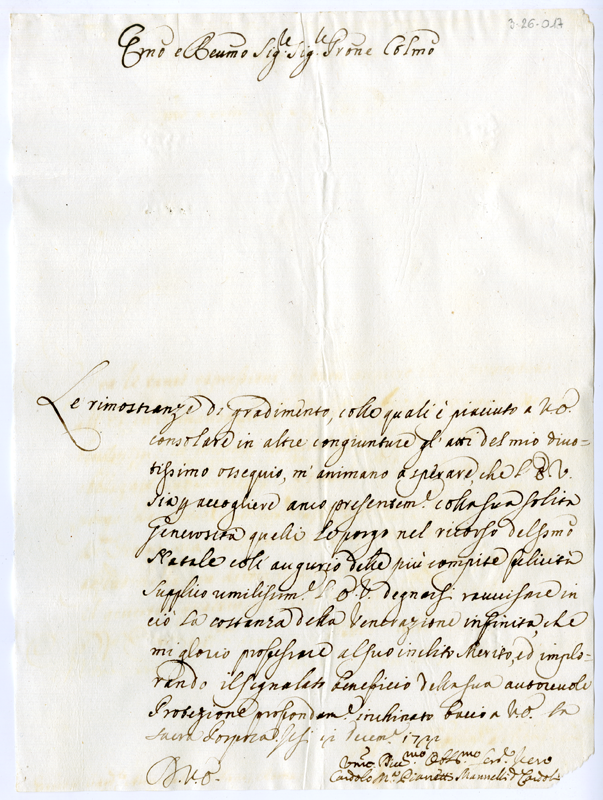 3-26-017
Emo e Reumo Sig.re Sig.re Prone Colmo
Le rimostranze di gradimento, colle quali è piaciuto a V.E.
consolare in altre congiunture gl'atti del mio divo=
tissimo ossequio, m'animano a sperare, che l'E.V.
sia p accogliere anco presentem.e colla sua solita
Generosità quelli le porgo nel ricorso del Smo
Natale coll'augurio delle più compite felicità
Supplico umilissim.e l'E.V. degnarsi ravvisare in
ciò la costanza della Venerazione infinita, che
mi glorio professare al suo inclito Merito, ed implo=
rando il segnalato beneficio della sua autorevole
Protezione profondam.e inchinato bacio a V.E. la
Sacra Porpora Jesi Decem.
D.V.E.
Vmo Dmo Obbmo Ser.
Pianetti Mannelli